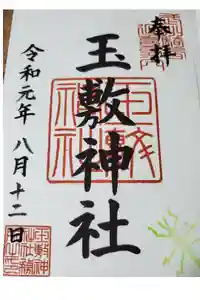 奉拝
玉敷神社
令和元年八月十二日